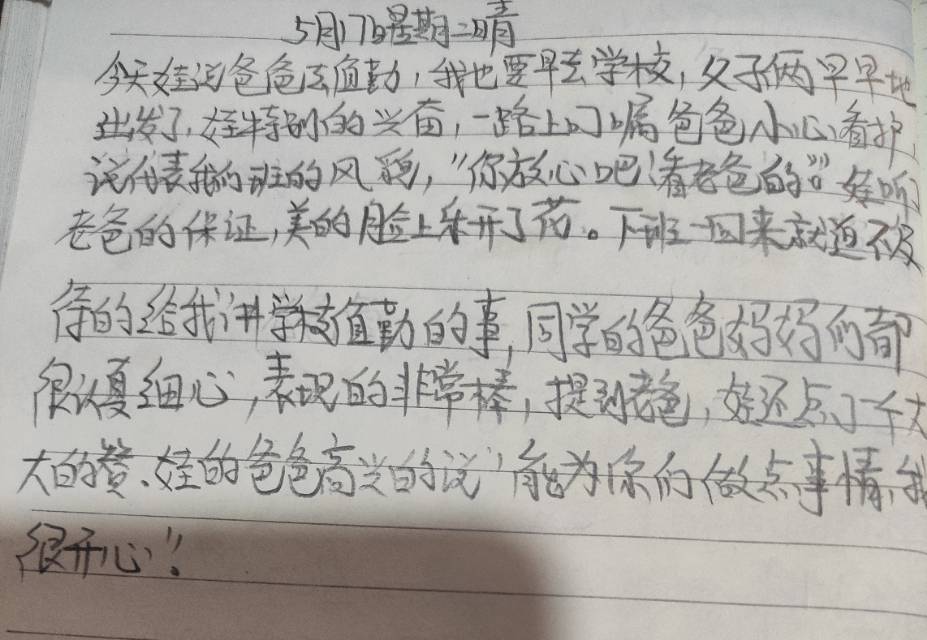 5月17日星期二晴
今天娃说爸爸去值勤，我也要早去学校，父子两早早地
出发了，娃特别的兴奋，一路上叮嘱爸爸小心看护，
说代表我们班的风貌，"你放心吧！看老爸的"。娃听
老爸的保证，美的脸上乐开了花。下班一回来就迫不及
待的给我讲学校值勤的事，同学的爸爸妈妈们都
很认真细心，表现的非常棒，提到老爸，娃还点了一个大
大的赞、娃的爸爸高兴的说"能为你们做点事情，我
很开心"！